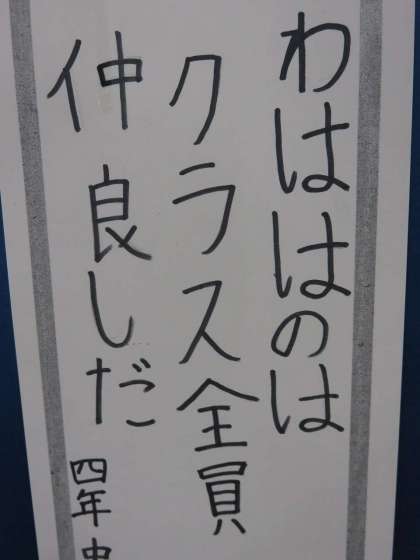 わははのは
クラス全員
仲良しだ
四年